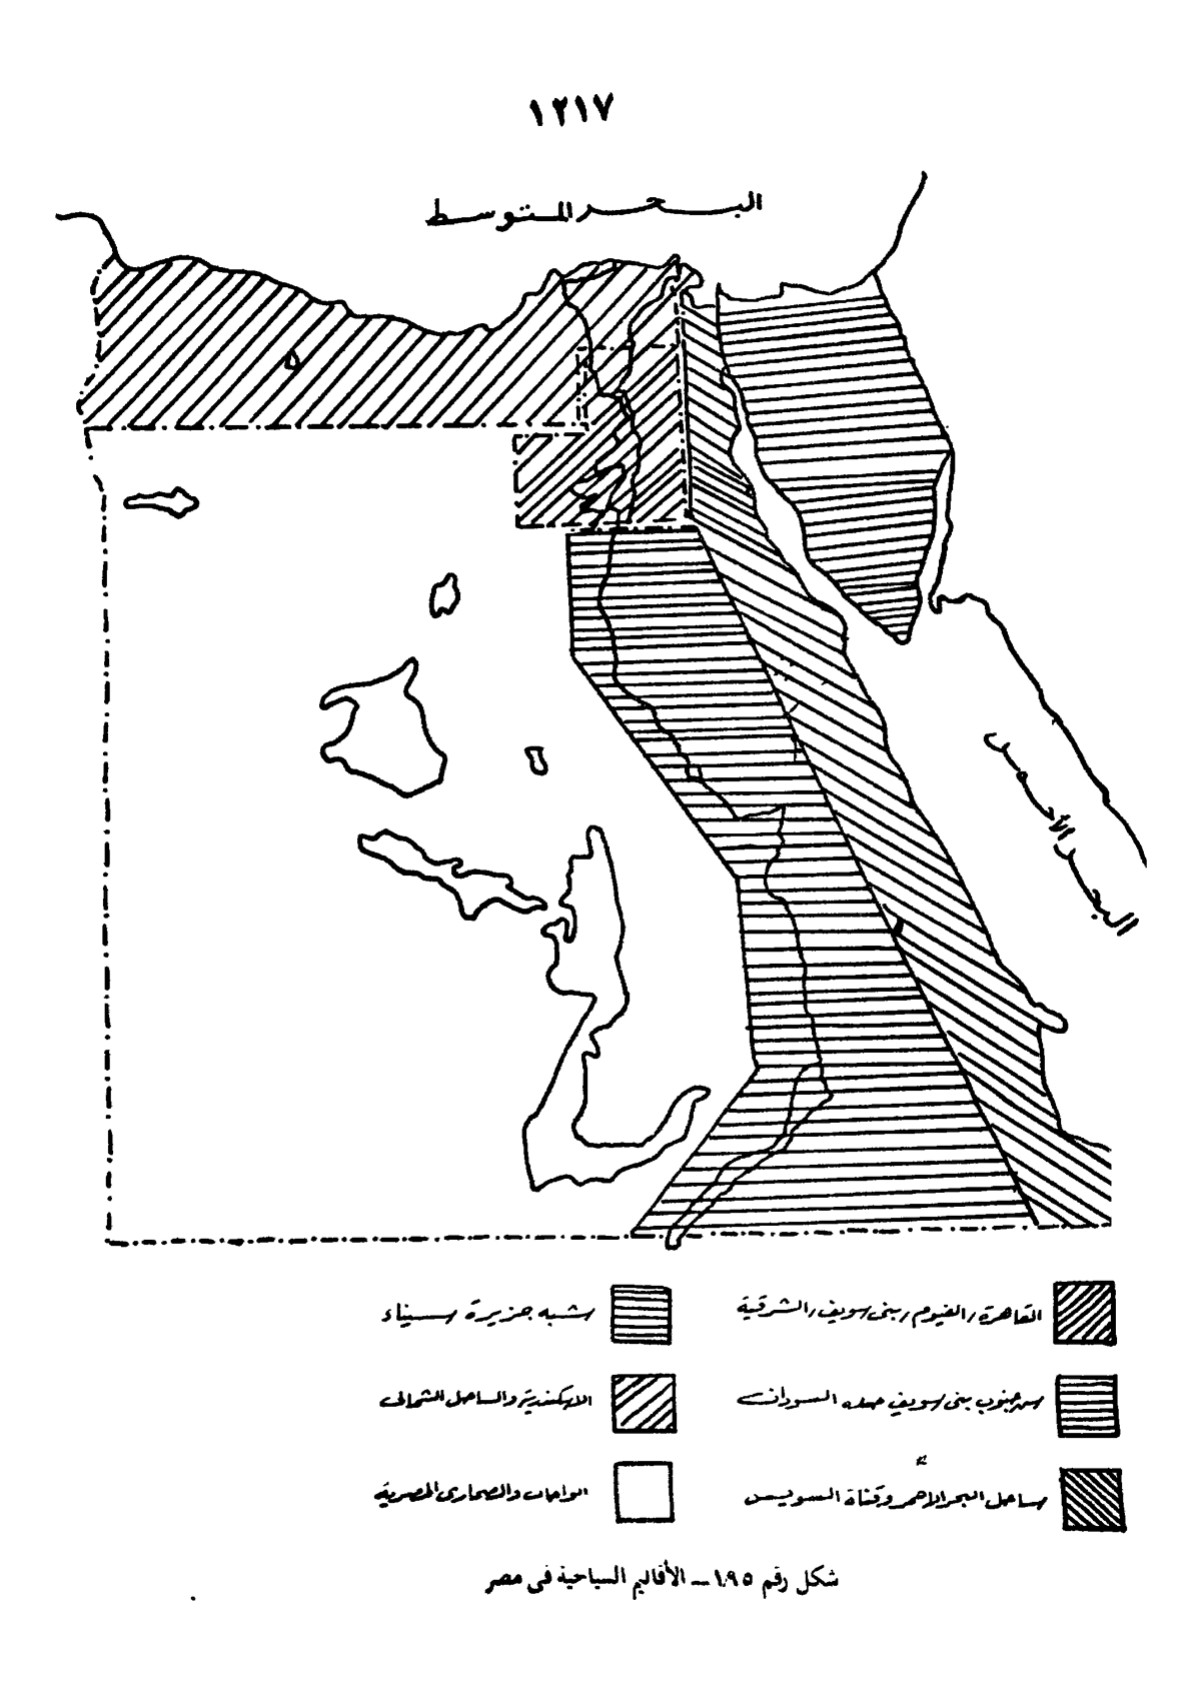 ١٢١٧
البحر المتوسط
البحر الأحمر
القاهرة/الفيوم/بنى سويف/الشرقية
شبه جزيرة سيناء
جنوب بنى سويف السودان
الاسكندرية والساحل الشمالى
ساحل البحر الاحمر وقناة السويس
الواحات والصحارى المصرية
شكل رقم ١٩٥ – الأقاليم السياحية فى مصر